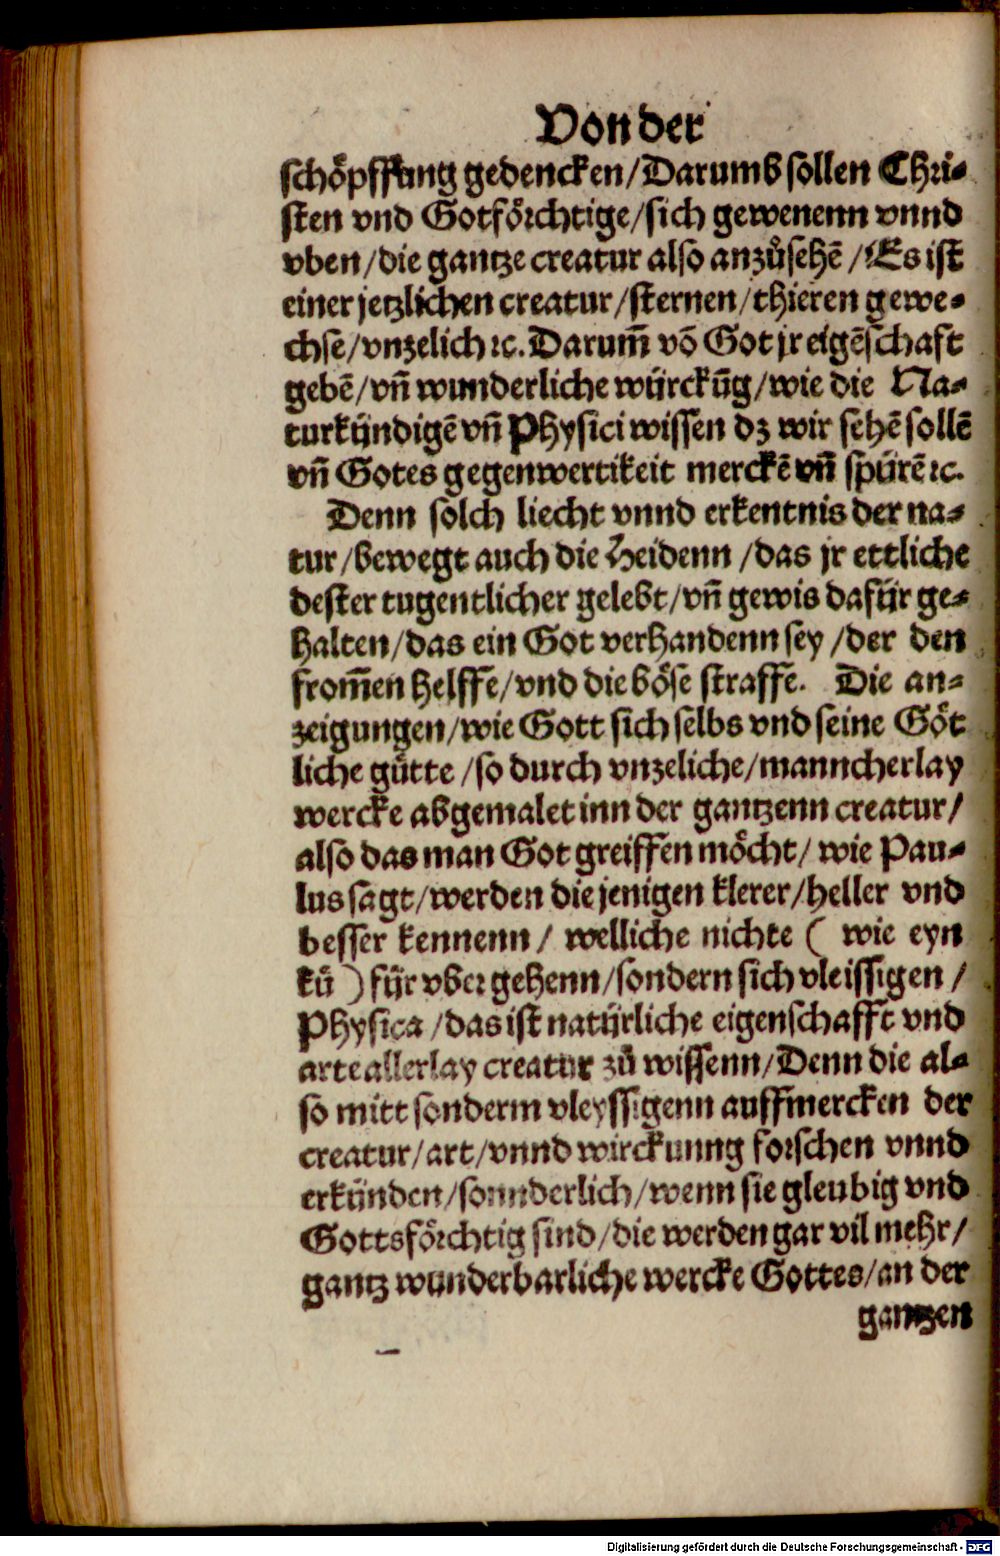 Von der
schoͤpffung gedencken/Darumb sollen Chri⸗
sten vnd Gotfoͤrchtige/sich gewenenn vnnd
vben/die gantze creatur also anzuͦsehē/Es ist
einer jetzlichen creatur/sternen/thieren gewe⸗
chse/vnzelich ꝛc. Darum̄ vō Got jr eigēschaft
gebē/vn̄ wunderliche wyͤrckūg/wie die Na⸗
turkuͤndigē vn̄ Physici wissen dz wir sehē sollē
vn̄ Gotes gegenwertikeit merckē vn̄ spuͤrē ꝛc.
Denn solch liecht vnnd erkentnis der na⸗
tur/bewegt auch die Heidenn/das jr ettliche
dester tugentlicher gelebt/vn̄ gewis dafuͤr ge⸗
halten/das ein Got verhandenn sey/der den
from̄en helffe/vnd die boͤse straffe. Die an⸗
zeigungen/wie Gott sich selbs vnd seine Goͤt
liche guͤtte/so durch vnzeliche/manncherlay
wercke abgemalet inn der gantzenn creatur/
also das man Got greiffen moͤcht/wie Pau⸗
lus sagt/werden die jenigen klerer/heller vnd
besser kennenn/welliche nichte (wie eyn
kuͤ) fuͤr vber gehenn/sondern sich vleissigen/
Physica/das ist natuͤrliche eigenschafft vnd
arte allerlay creatur zuͦ wissenn/Denn die al⸗
so mitt sonderm vleyssigenn auffmercken der
creatur/art/vnnd wirckunng forschen vnnd
erkuͤnden/sonnderlich/wenn sie gleubig vnd
Gottsfoͤrchtig sind/die werden gar vil mehr/
gantz wunderbarliche wercke Gottes/an der
gantzen
Digitalisierung gefördert durch die Deutsche Forschungsgemeinschaft - DFG